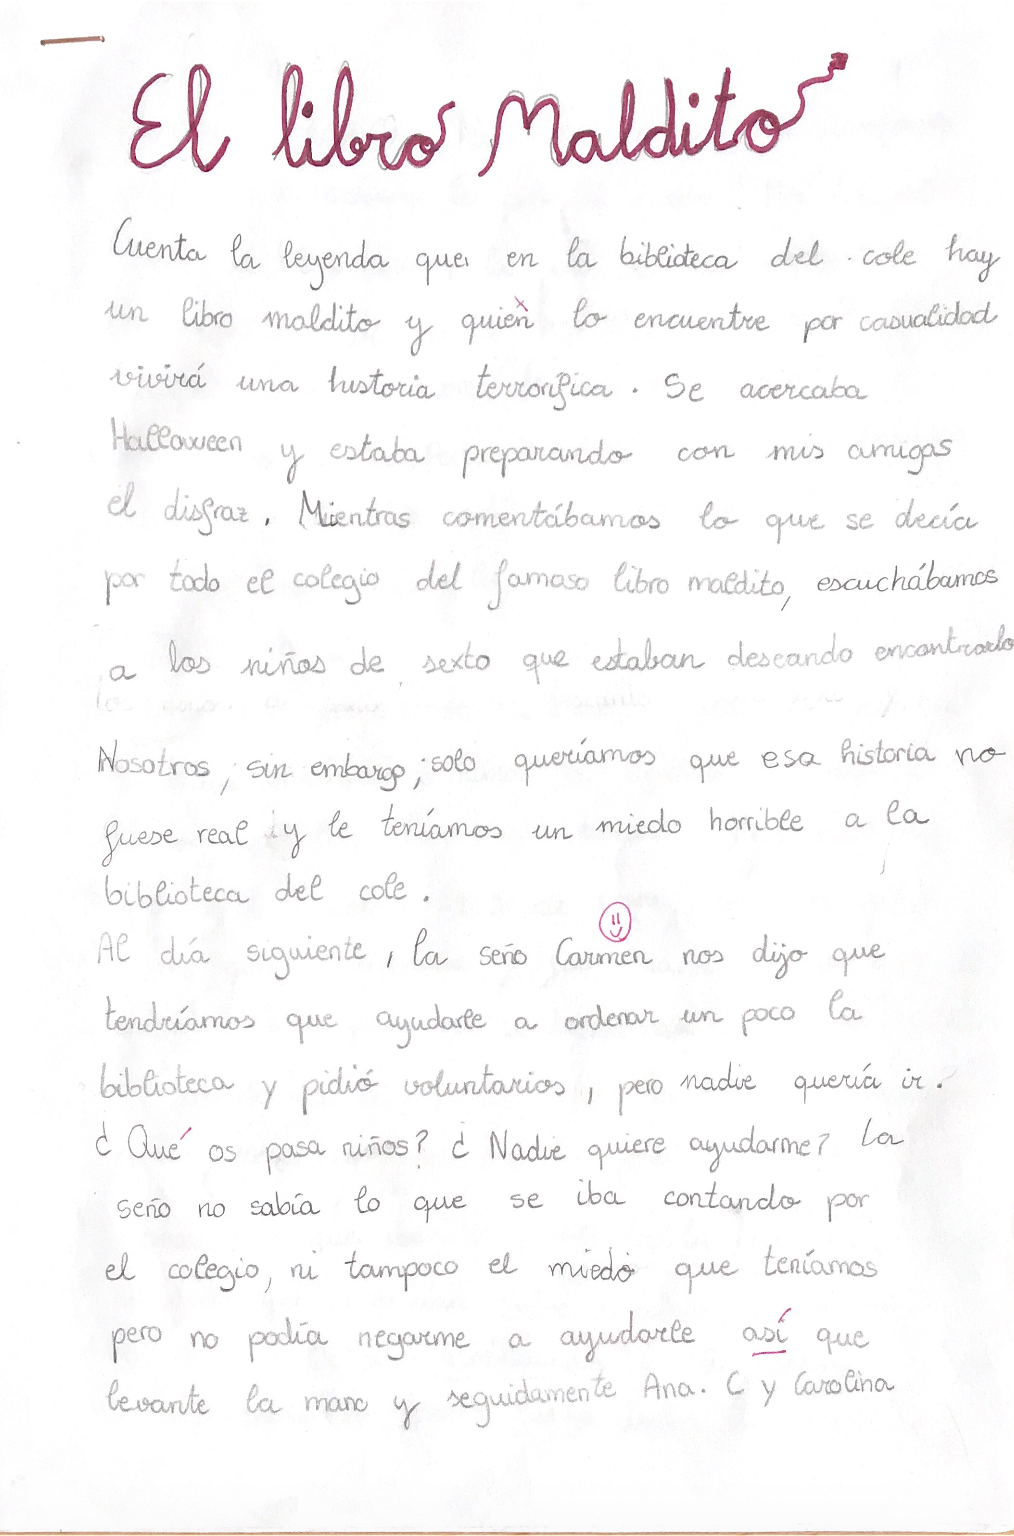 El libro Maldito
Cuenta la leyenda que en la biblioteca del cole hay
un libro maldito y quien lo encuentre por casualidad
vivirá una historia terrorífica. Se acercaba
Halloween y estaba preparando con mis amigas
el disfraz. Mientras comentábamos lo que se decía
por todo el colegio del famoso libro maldito, escuchábamos
a los niños de sexto que estaban deseando encontrarlo
Nosotros, sin embargo, solo queríamos que esa historia no
fuese real y le teníamos un miedo horrible a la
biblioteca del cole.
Al día siguiente, la seño Carmen nos dijo que
tendríamos que ayudarle a ordenar un poco la
biblioteca y pidió voluntarios, pero nadie quería ir.
¿Qué os pasa niños? ¿Nadie quiere ayudarme? La
seño no sabía lo que se iba contando por
el colegio, ni tampoco el miedo que teníamos
pero no podía negarme a ayudarle así que
levante la mano y seguidamente Ana. C y Carolina